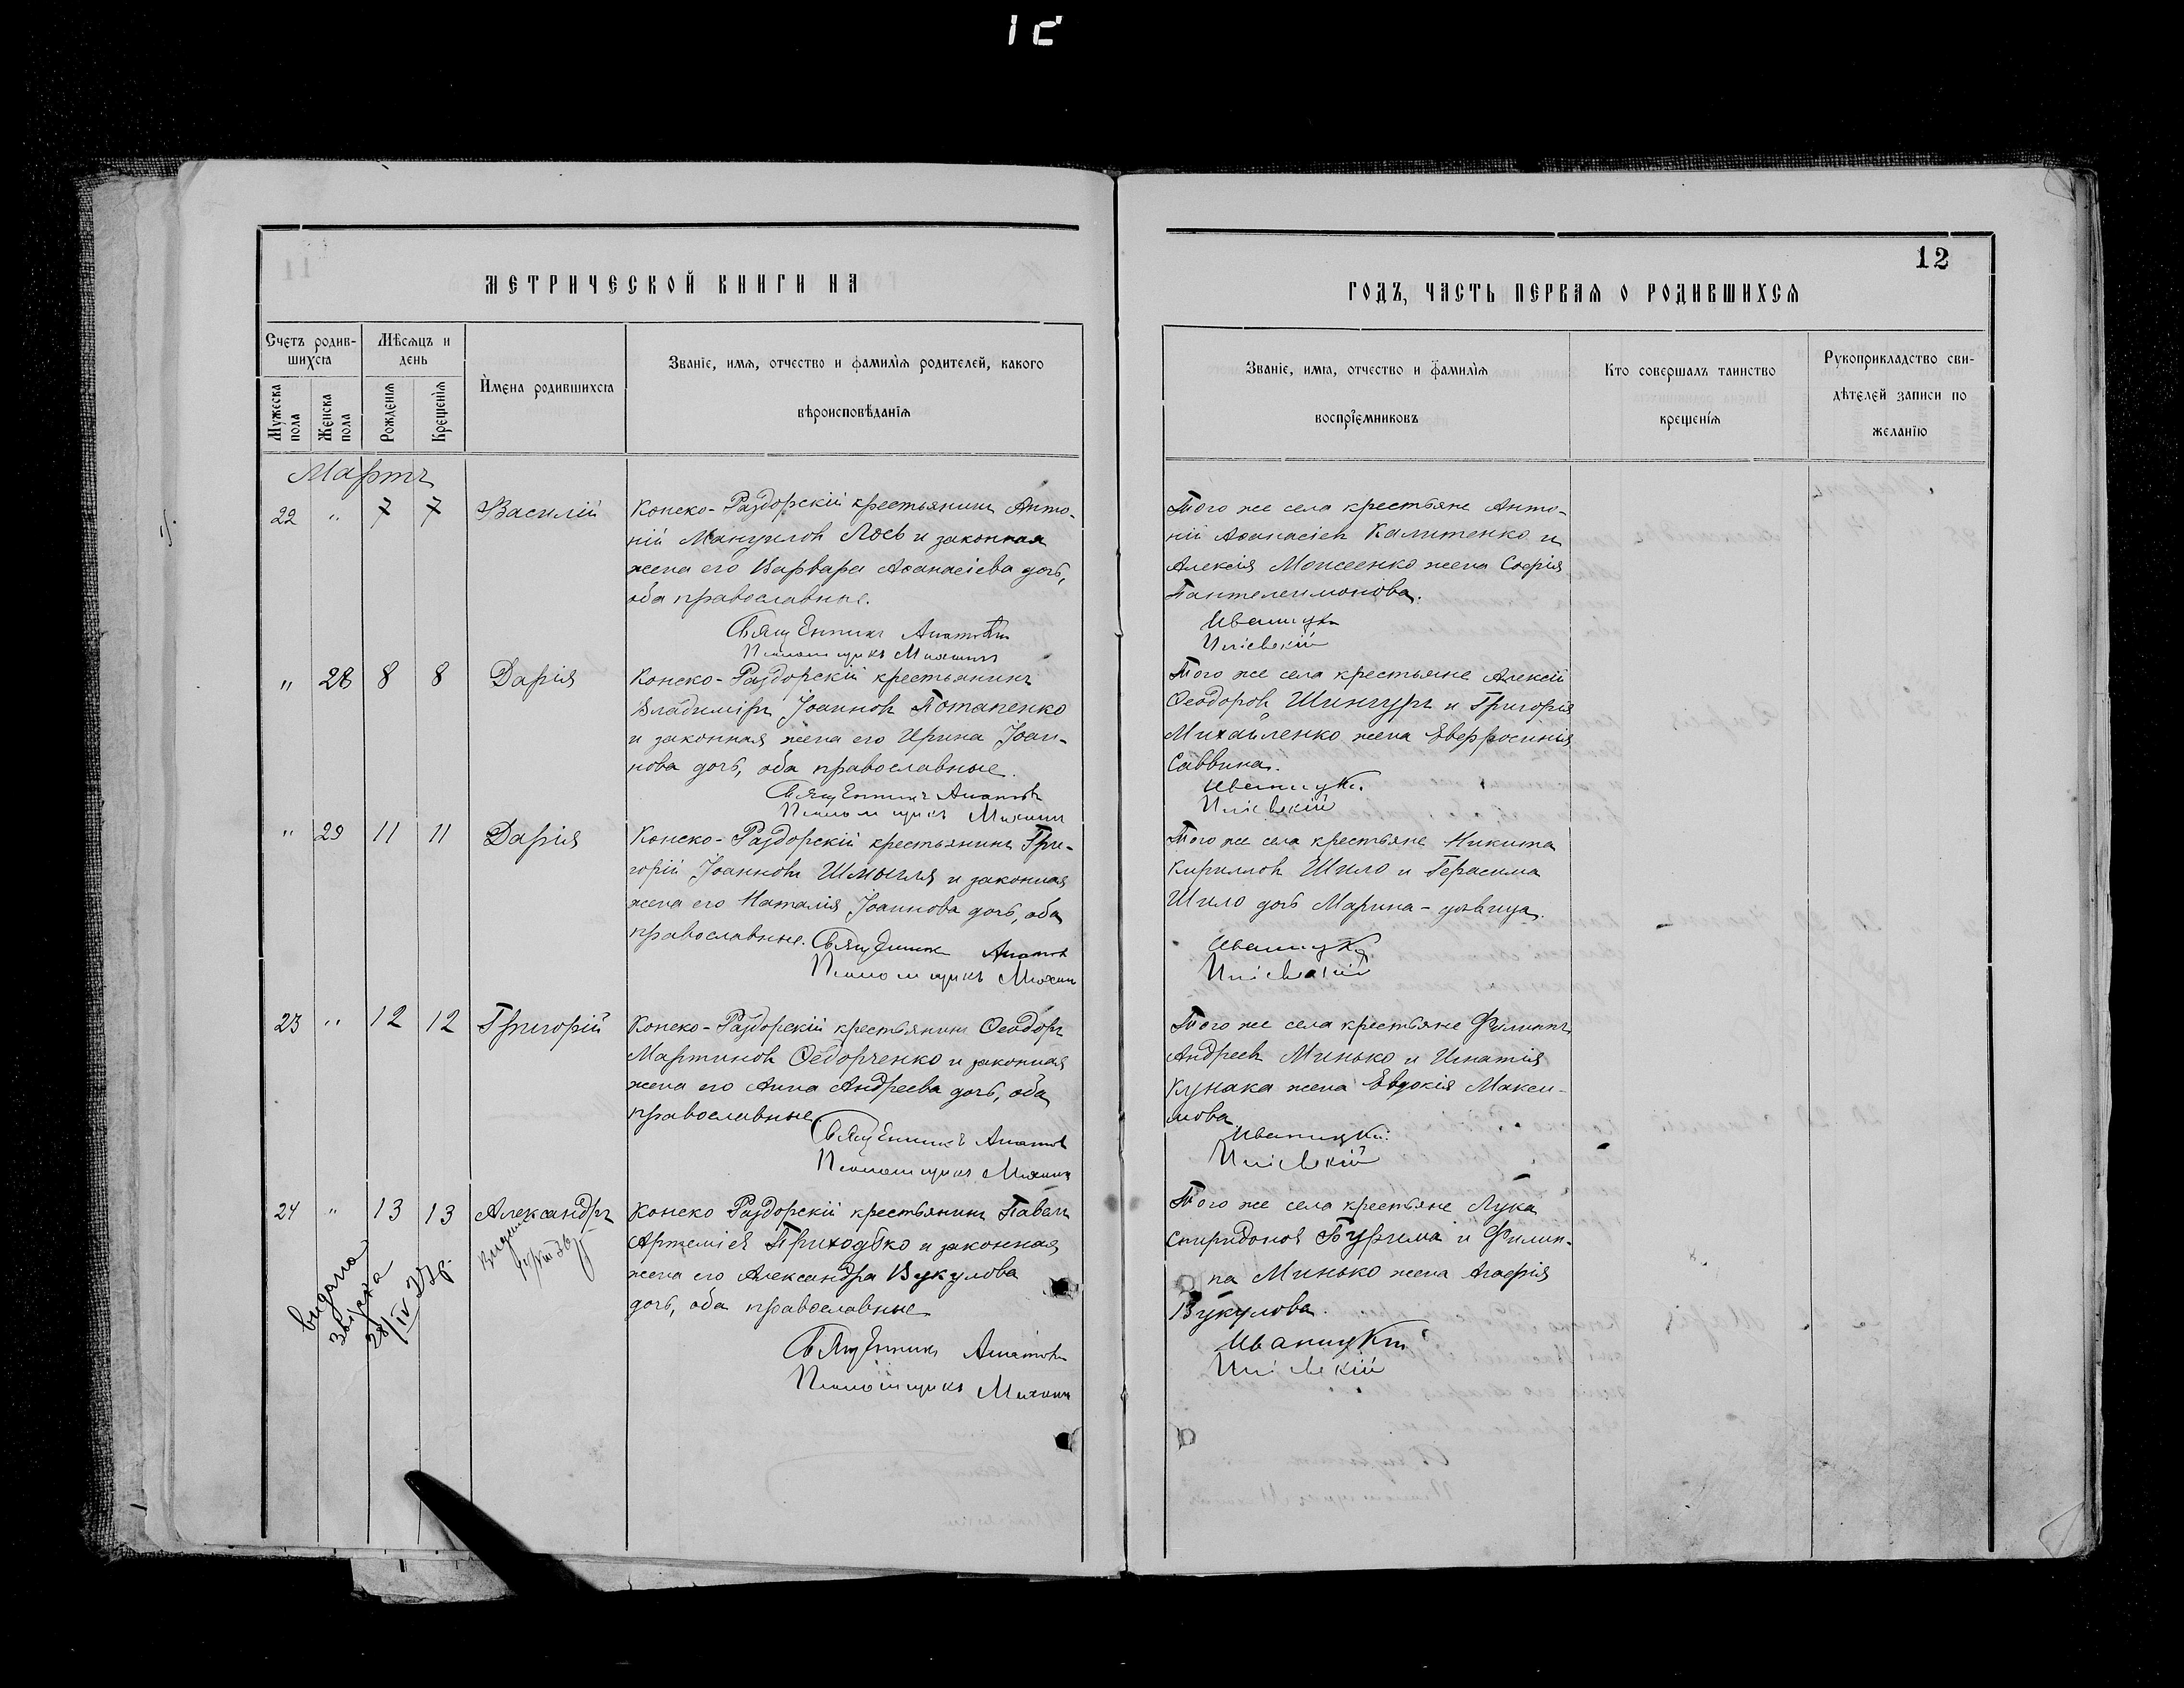 12
МЕТРИЧЕСКОЙ КНИГИ НА
Счетъ родив-
шихся
Мѣсяцъ и
день
Мужеска
пола
Женска
пола
Рожденія
Крещенія
Имена родившихся
Званіе, имя, отчество и фамилія родителей, какого
вѣроисповѣданія
Мартъ
22 " 7 7 Василій
Конско-Раздорскій крестьянинъ Анто-
ній Мануиловъ Лось и законная
жена его Варвара Аѳанасіева дочь,
оба православные.
Священникъ
Псаломщикъ
" 28 8 8 Дарія
Конско-Раздорскій крестьянинъ
Владиміръ Іоанновъ Потапенко
и законная жена его Ирина Іоан-
нова дочь, оба православные.
Священникъ
Псаломщикъ
" 29 11 11 Дарія
Конско-Раздорскій крестьянинъ Гри-
горій Іоанновъ Шмыгля и законная
жена его Наталія Іоаннова дочь, оба
православные.
Священникъ
Псаломщикъ
23 " 12 12 Григорій
Конско-Раздорскій крестьянинъ Ѳеодоръ
Мартиновъ Ѳедорченко и законная
жена его Анна Андреева дочь, оба
православные
Священникъ
Псаломщикъ
24 " 13 13 Александръ
Конско Раздорскій крестьянинъ Павелъ
Артеміевъ Приходько и законная
жена его Александра Вукулова
дочь, оба православные
Священникъ
Псаломщикъ
видана
28/IV 27 р.
12
ГОДЪ, ЧАСТЬ ПЕРВАЯ О РОДИВШИХСЯ
Званіе, имя, отчество и фамилія
воспріемниковъ
Кто совершалъ таинство
крещенія
Рукоприкладство сви-
дѣтелей записи по
желанію
Того же села крестьяне Анто-
ній Аѳанасіевъ Калитенко и
Алексія Моисеенко жена Софія
Пантелеимонова.
Иваницкій
Того же села крестьяне Алексій
Ѳеодоровъ Шингуръ и Григорія
Михайленко жена Евфросинія
Саввина.
Иваницкій
Того же села крестьяне Никита
Кирилловъ Шило и Герасима
Шило дочь Марина - дѣвица.
Иваницкій
Того же села крестьяне Филиппъ
Андреевъ Минько и Игнатія
Кунака жена Евдокія Макси-
мова
Иваницкій
Того же села крестьяне Лука
Спиридоновъ Бурима и Филип-
па Минько жена Агафія
Вукулова.
Иваницкій